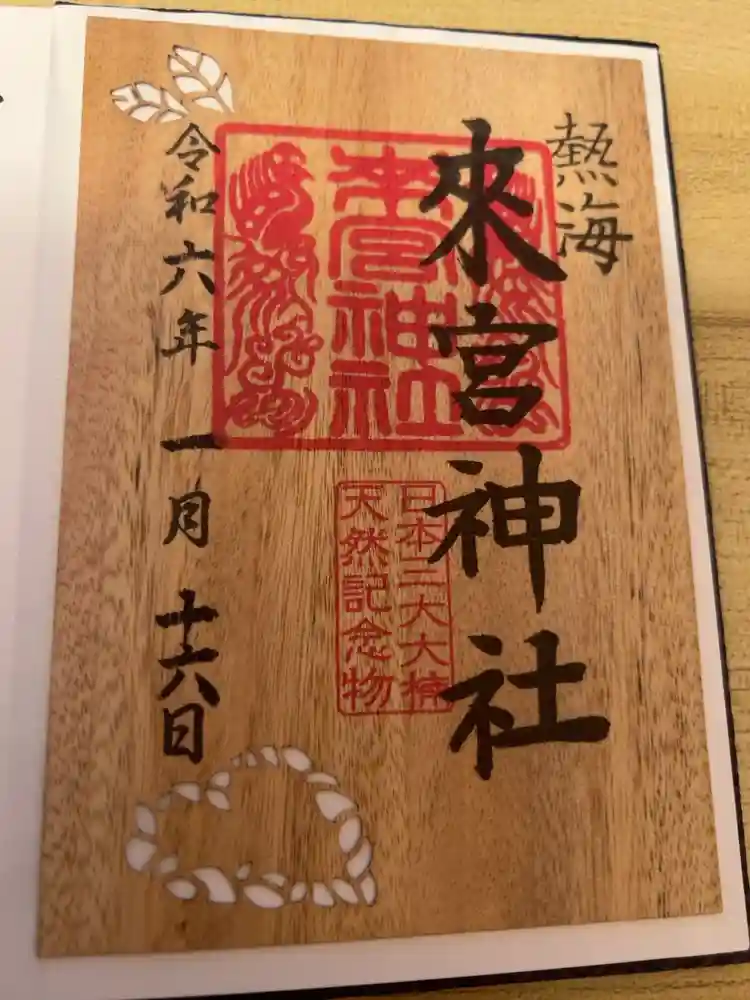 熱海
來宮神社
来宮神社
日本三大大楠
天然記念物
令和六年 一月 十六日